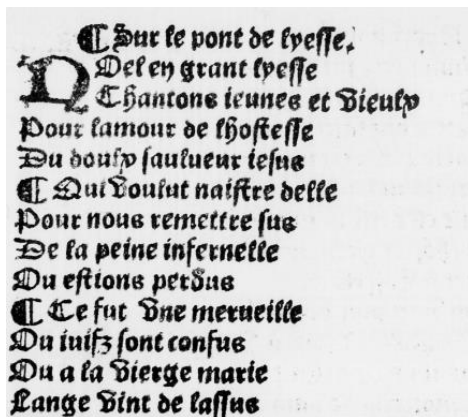 ¶ Sur le pont de lyesse.
NOel en grant lyesse
Chantons ieunes et vieulx
Pour lamour de lhostesse
Du doulx saulueur iesus
¶ Qui voulut naistre delle
Pour nous remettre sus
De la peine infernelle
Ou estions perdus
¶ Ce fut vne merueille
Ou iuifz sont confus
Ou a la vierge marie
Lange vint de lassus